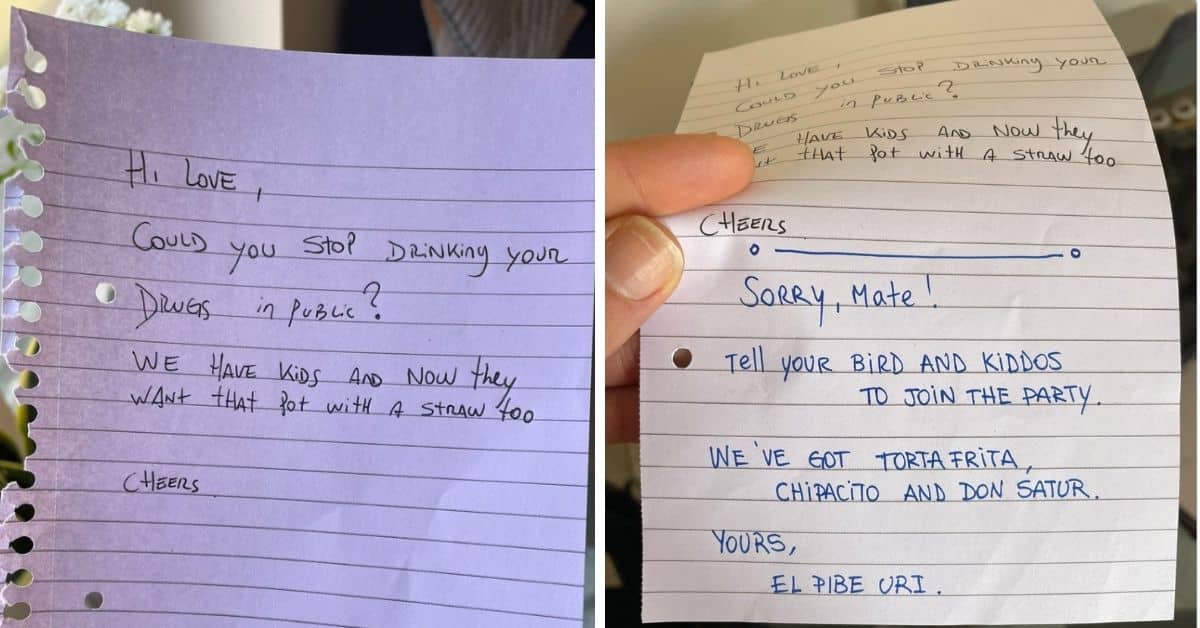 Hi LOVE,
COULD you StoP DRiNKing youR
DRUGS in PuBLic?
WE HAVE KiDS AND NOW they
WANt tHAt Pot witH A StRAW too
CHEERS
Hi LOVE,
COULD you StoP DRiNKing youR
DRUGS in PuBLic?
HAVE KiDS AND NOW they
tHAt Pot witH A StRAW too
CHEERS
SORRY, Mate!
Tell YOUR BiRD AND KiDDOS
TO JOiN THE PARTY.
WE'VE GOT TORTA FRiTA,
CHiPACiTO AND DON SATUR.
YOURS,
EL PIBE URI.